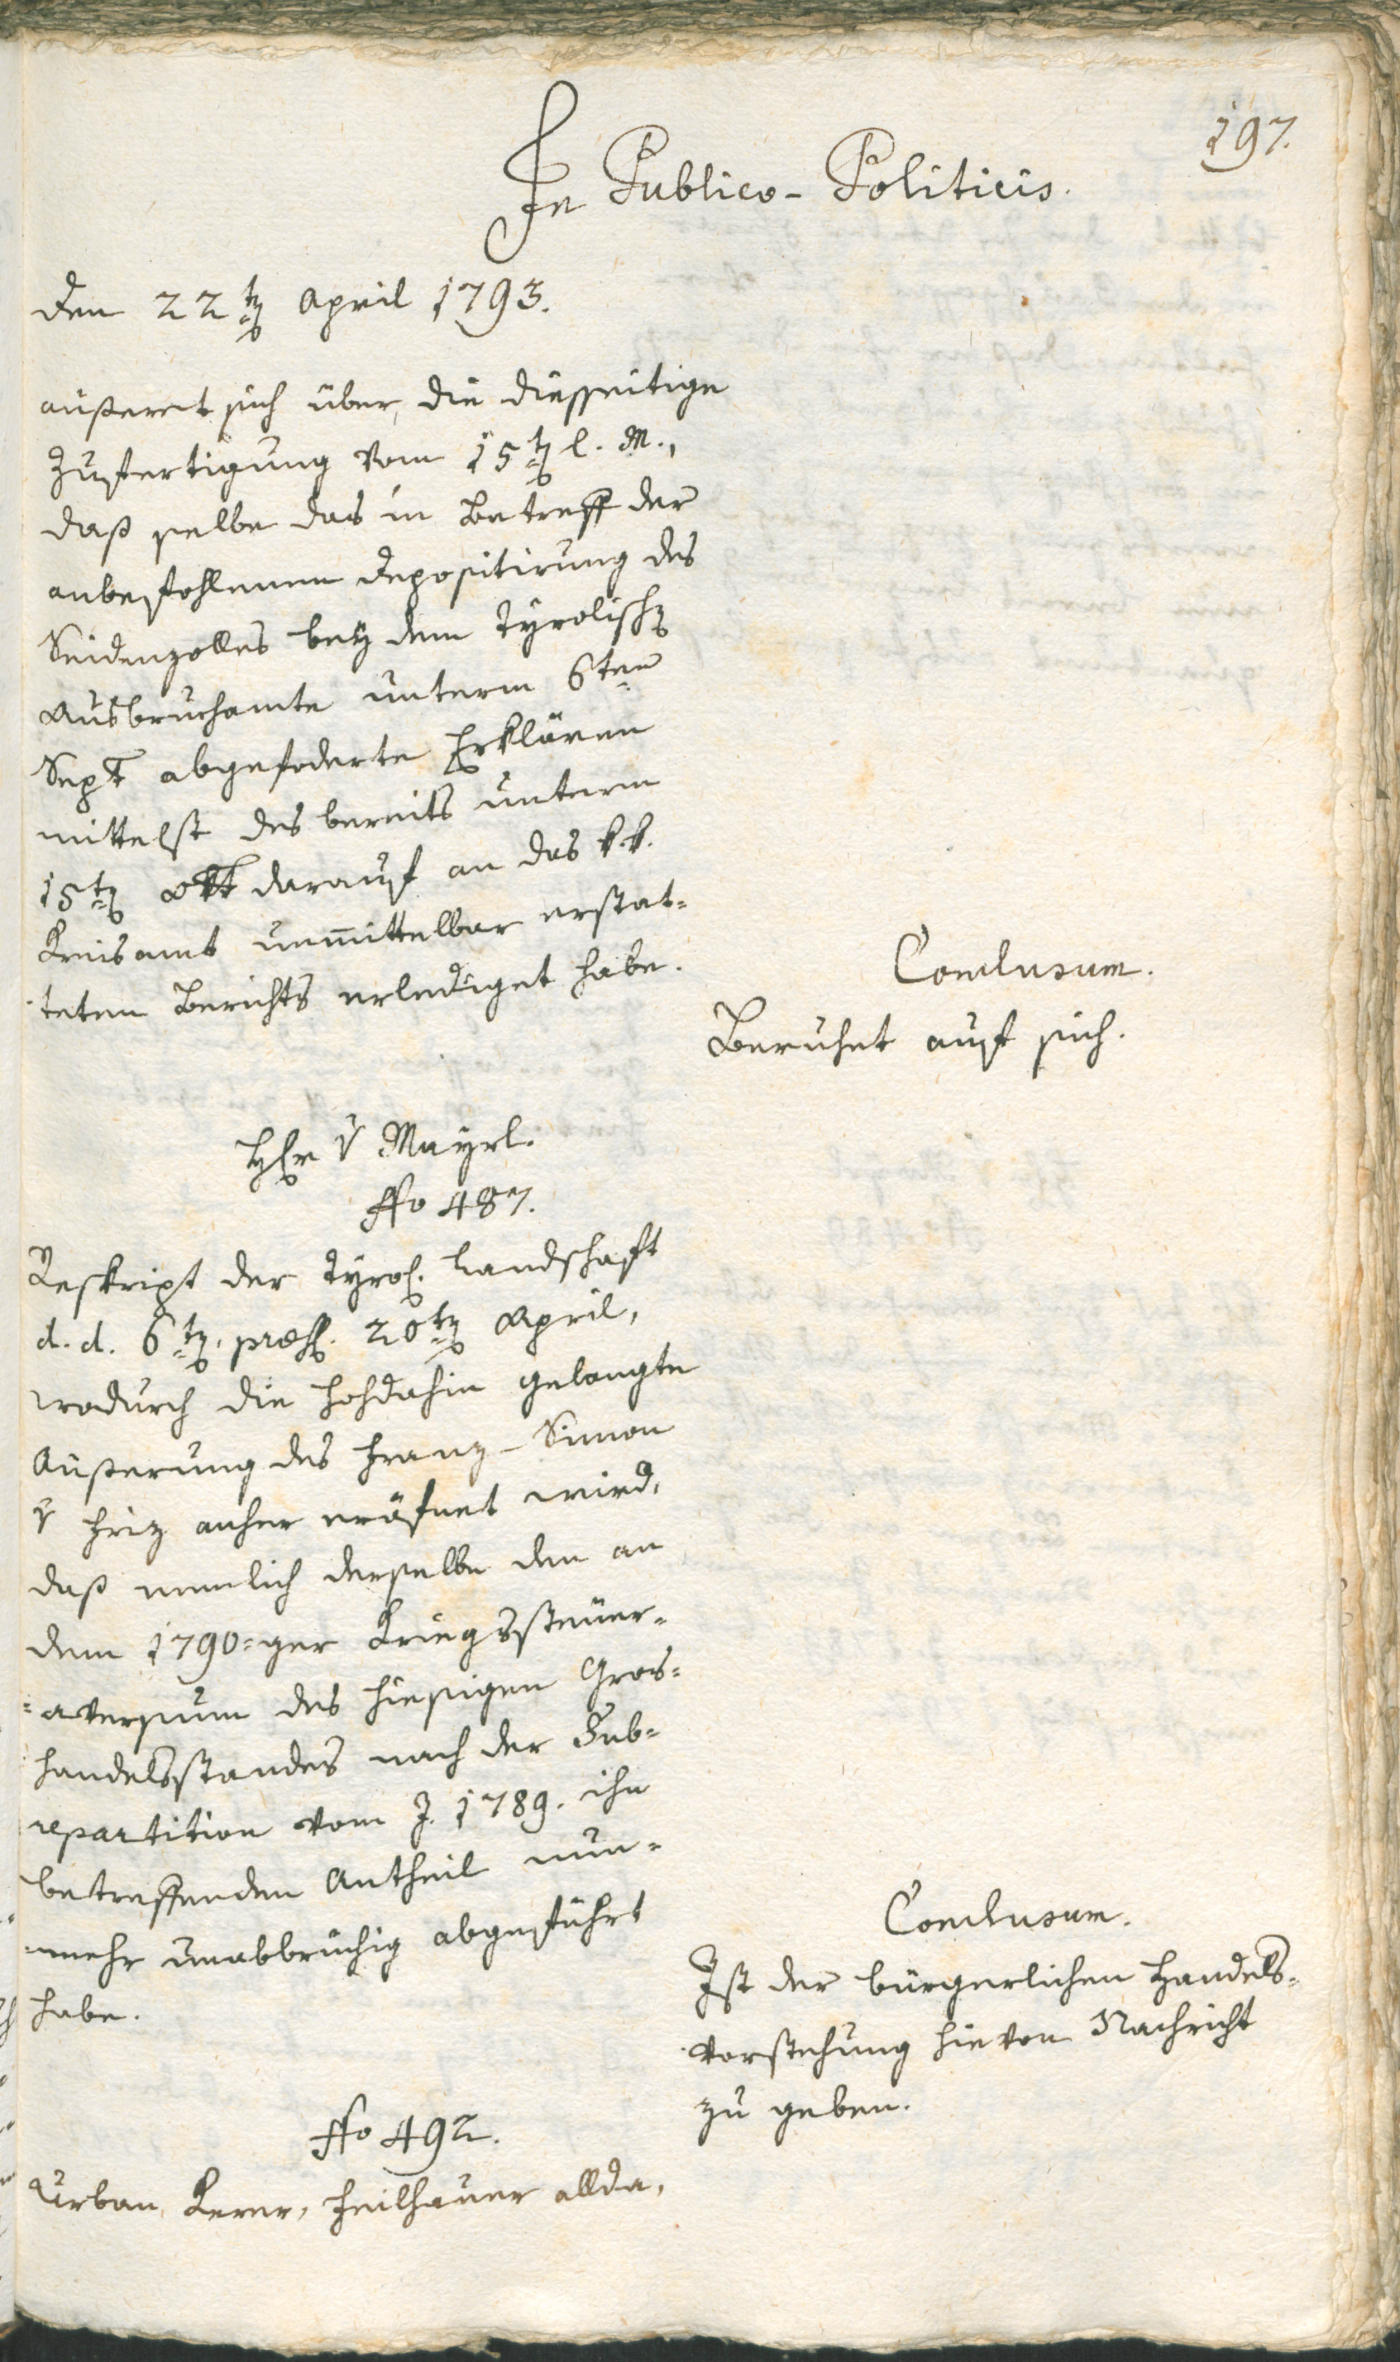 197.
In Publico-Politicis.
Den 22ten April 1793.
äußeret sich über die diesseitige
Zufertigung vom 15ten l. M.,
daß selbe das in Betreff der
anbefohlenen Depositirung des
Seidenzolles bey dem Tyrolischen
Ausbruchamte unterm 6ten
Sept abgefoderte Erklären
mittelst des bereits unterm
15ten Okt darauf an das k. k.
Kreisamt unmittelbar erstat=
teten Berichts erlediget habe.
Conclusum.
Beruhet auf sich.
Hr v Mayrl.
No 487.
Reskript der Tyrol. Landschaft
d. d. 6ten, præs. 20ten April,
wodurch die hohdahin gelangte
Äußerung des Franz-Simon
v Friz anher eröfnet wird,
daß nemlich derselbe den an
dem 1790=ger Kriegssteuer=
=aversum des hiesigen Gros=
handelsstandes nach der Sub=
repartition vom J. 1789. ihn
betreffenden Antheil nun=
mehr unabbrüchig abgeführt
habe.
Conclusum.
Ist der bürgerlichen Handels=
vorstehung hievon Nachricht
zu geben.
No 492.
Urban Kerer, Feilhauer allda,